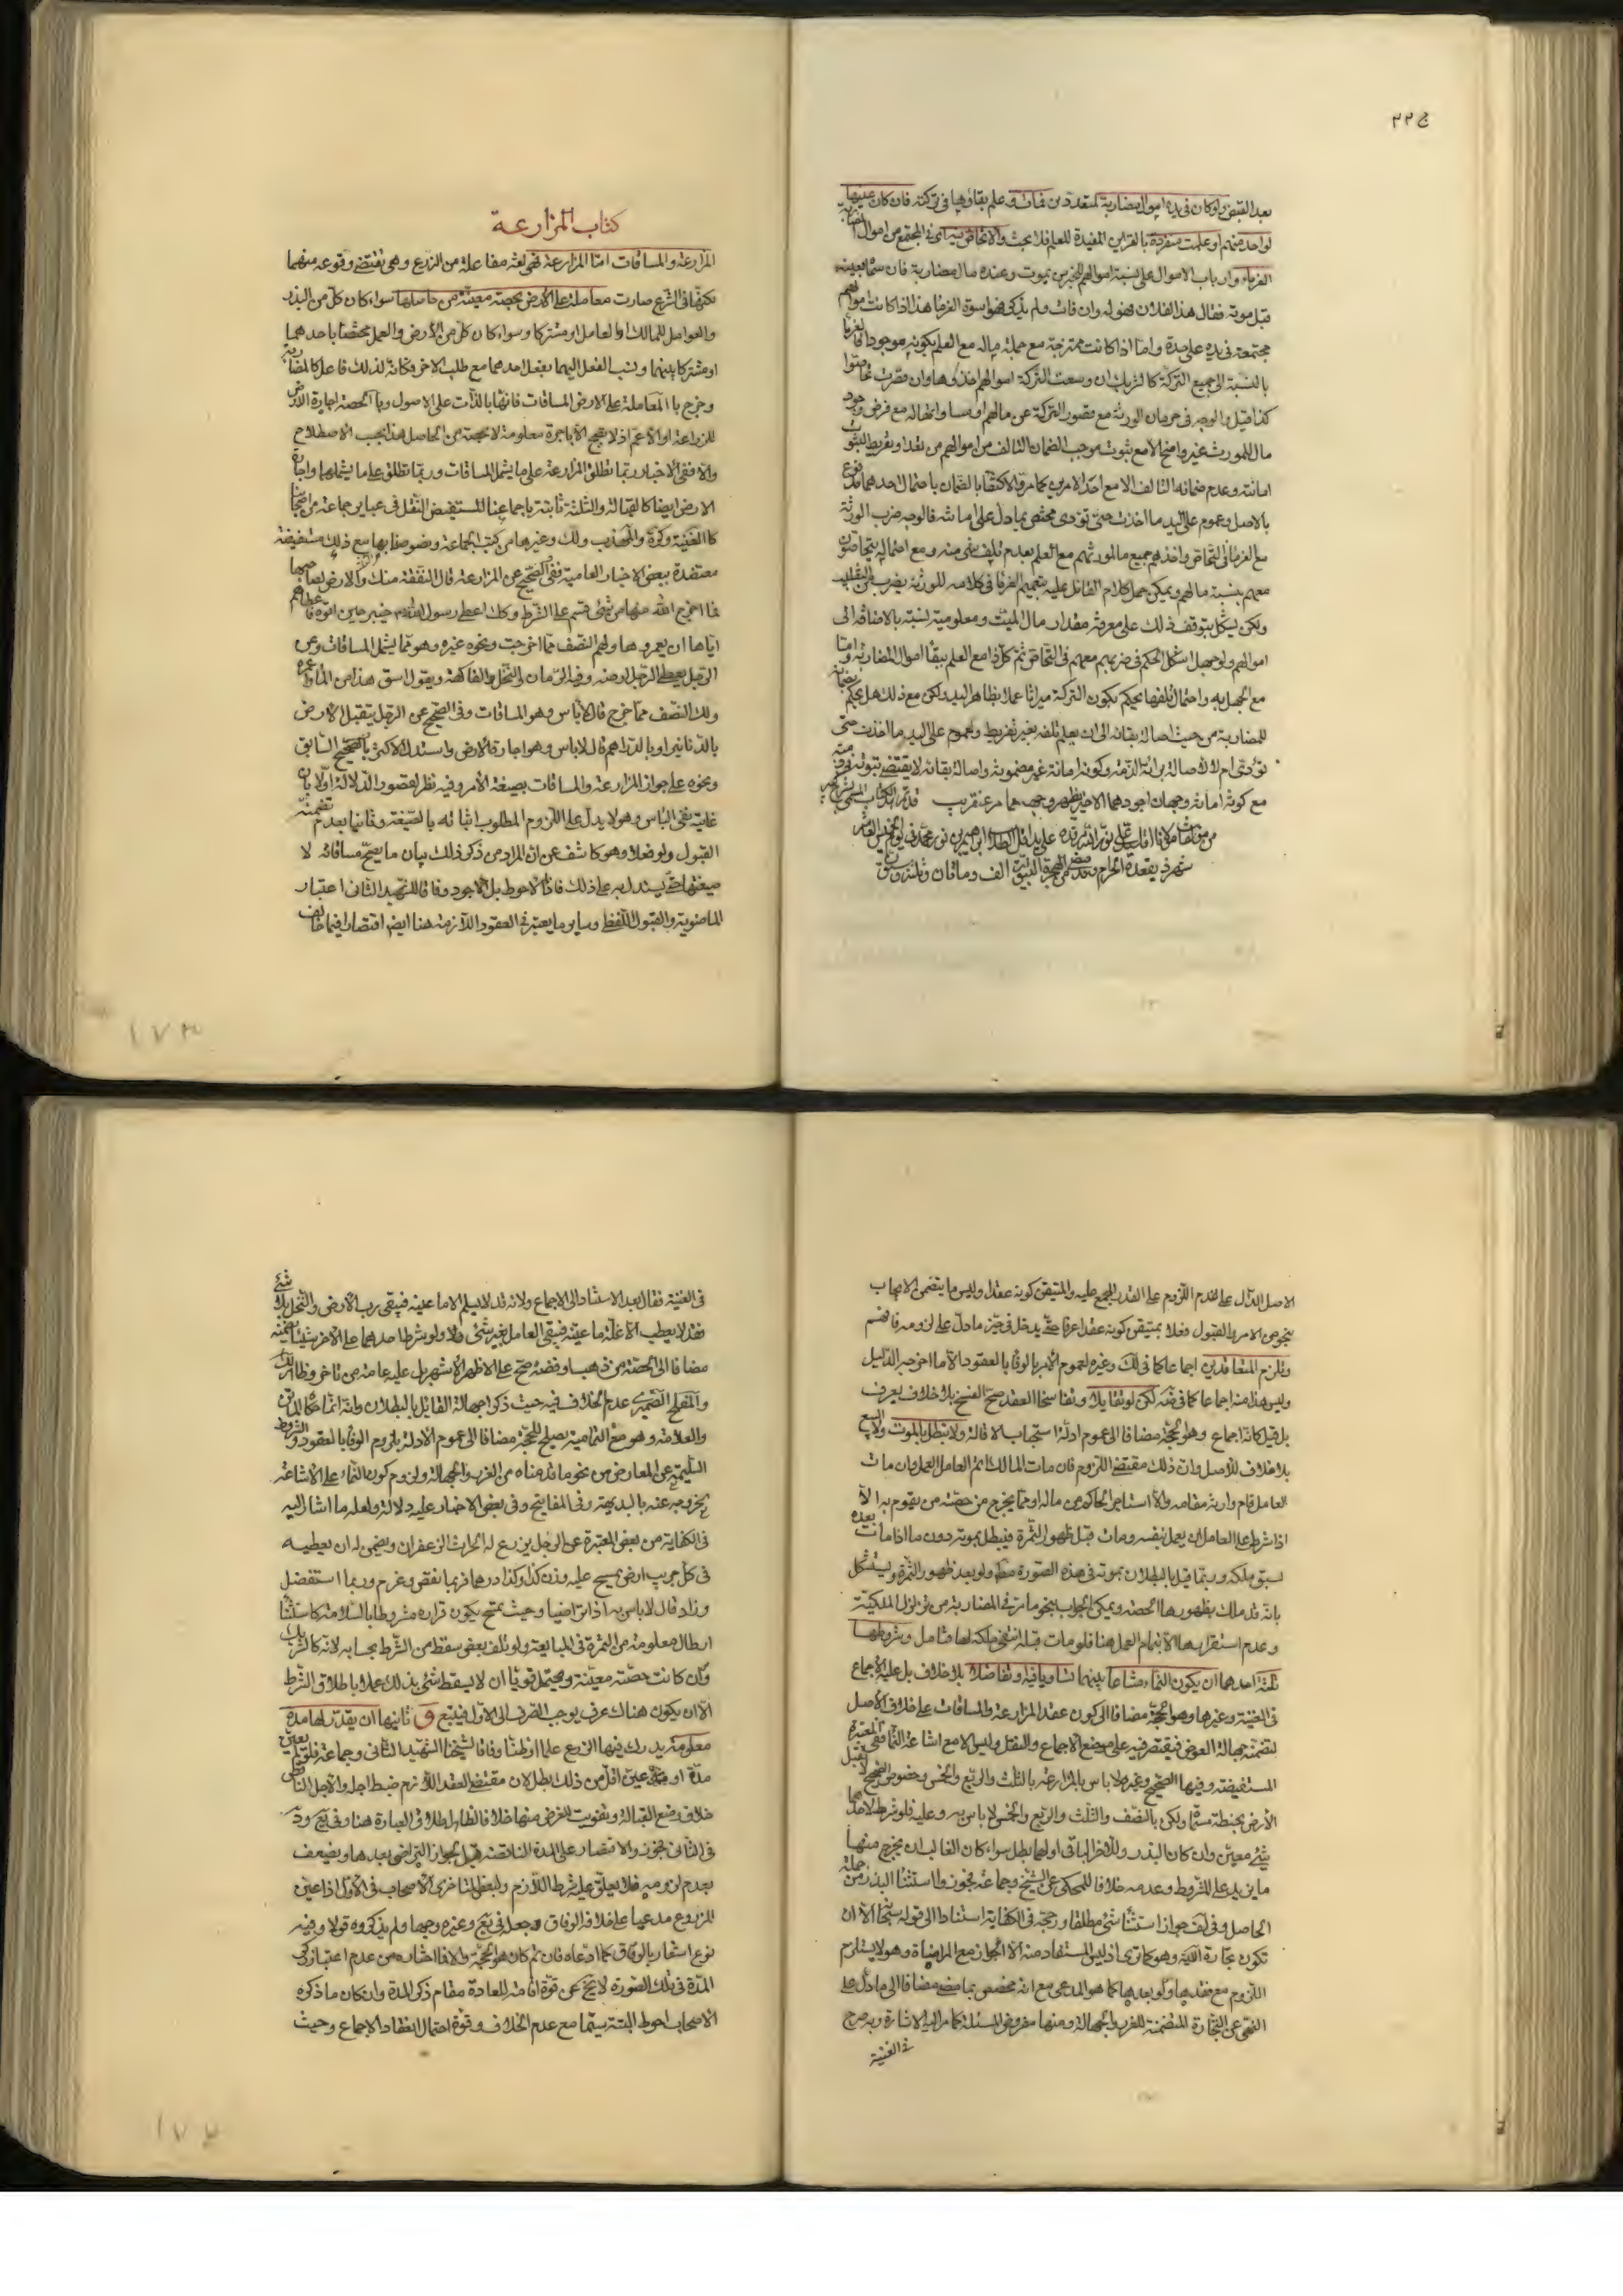 بعد القبض ولو كان فى يده اموال مضاربة لمتعدد من فمات و علم بقاؤها فى تركته فان كان عينها
لواحد منهم او علمت منفردة بالقراين المفيدة للعلم فلا بحث والا تحاص
الغرماء وارباب الاموال على نسبة اموالهم الخبر من يموت وعنده مال مضاربة فان سماه بعينه
قبل موته فقال هذا لفلان فهو له وان مات ولم يذكر فهو اسوة الغرماء هذا اذا كانت اموالهم
مجتمعة فى يده على حدة واما اذا كانت ممتزجة مع جملة ماله مع العلم بكونه موجودا فالغرماء
بالنسبة الى جميع التركة كالشريك ان وسعت التركة اموالهم اخذوها وان قصرت تحاصوا
كذا قيل والوجه فى حرمان الورثة مع قصور التركة عن مالهم او مساواتها له مع فرض وجود
مال للمورث غير واضح الا مع ثبوت موجب الضمان التالف من اموالهم من تعد او تفريط لثبوت
امانته وعدم ضمانه التالف الا مع احد الامرين كما مر
بالاصل وعموم على اليد ما اخذت حتى تؤدى مختص بما دل على امانته فالوجه ضرب الورثة
مع الغرماء فى التحاص واخذهم جميع ما لمورثهم مع العلم بعدم تلف شئ منه ومع احتماله يتحاصون
معهم بنسبة مالهم ويمكن حمل كلام القائل عليه بتعميم الغرماء فى كلامه للورثة
ولكن يشكل بتوقف ذلك على معرفة مقدار مال الميت ومعلومية نسبته بالاضافة الى
اموالهم ولو جهل اشكل الحكم فى ضربهم معهم فى التحاص ثم كل ذا مع العلم ببقاء اموال المضاربة واما
مع الجهل به واحتمال تلفها يحكم بكون التركة ميراثا عملا بظاهر اليد ولكن مع ذلك هل يحكم بضمانه
للمضاربة من حيث اصالة بقائه الى ان يعلم تلفه بغير تفريط ولعموم على اليد ما اخذت حتى
تؤدى ام لا لاصالة برائة الذمة وكونه امانة غير مضمونة واصالة بقائه لا يقتضى ثبوته فى ذمته
مع كونه امانة وجهان اجودهما الاخير لظهور وجههما مر عن قريب قد تم الكتاب
شهر ذيقعدة الحرام الف ومأتان
كتاب المزارعة
المزارعة والمساقات اما المزارعة فهى لغة مفاعلة من الزرع وهى تقتضى وقوعه منهما
لكنها فى الشرع صارت معاملة على الارض بحصة معينة من حاصلها سواء كان كل من البذر
والعوامل للمالك او العامل او مشتركا وسواء كان كل من الارض والعمل مختصا باحدهما
او مشتركا بينهما ونسب الفعل اليهما بفعل احدهما مع طلب الاخر فكانه لذلك فاعل كالمضاربة
وخرج بالمعاملة على الارض المساقات فانها بالذات على الاصول وبالحصة اجارة الارض
للزراعة او الاعم اذ لا تصح الا باجرة معلومة لا بحصة من الحاصل هذا بحسب الاصطلاح
والا ففى الاخبار ربما تطلق المزارعة على ما يشمل المساقات وربما تطلق على ما يشملهما واجارة
الارض ايضا كالقبالة والثلثة ثابتة باجماعنا المستفيض النقل فى عباير جماعة من اصحابنا
كالغنية وكرة والمهذب ولك وغيرها من كتب الجماعة ونصوصنا بها مع ذلك مستفيضة
معتضدة ببعض الاخبار العامية ففى الصحيح عن المزارعة قال النفقة منك والارض لصاحبها
فما اخرج الله منها من شئ قسم على الشرط وكك اعطى رسول الله خيبر حين اتوه فاعطاهم
اياها ان يعمروها ولهم النصف مما اخرجت ونحوه غيره وهو مما يشمل المساقات وعن
الرجل يعطى الرجل ارضه وفيها الرمان والنخل والفاكهة ويقول اسق هذا من الماء واعمره
ولك النصف مما خرج قال لا باس وهو المساقات وفى الصحيح عن الرجل يتقبل الارض
بالدنانير او بالدراهم قال لا باس وهو اجارة الارض واستدل الاكثر بالصحيح السابق
ونحوه على جواز المزارعة والمساقات بصيغة الامر وفيه نظر لقصور الدلالة اولا بان
غايته نفى الباس وهو لا يدل على اللزوم المطلوب اثباته بالصيغة وثانيا بعدم تضمنه
القبول ولو فعلا وهو كاشف عن ان المراد من ذكر ذلك بيان ما يصح مساقاته لا
صيغتها حتى يستدل به على ذلك فاذا الاحوط بل الاجود وفاقا للشهيد الثانى اعتبار
الماضوية والقبول اللفظى وساير ما يعتبر فى العقود اللازمة هنا ايضا اقتصارا فيما خالف
الاصل الدال على عدم اللزوم على القدر المجمع عليه والمتيقن كونه عقدا وليس ما يتضمن الايجاب
بنحو من الامر بالقبول فعلا بمتيقن كونه عقدا عرفا حتى يدخل فى حيز ما دل على لزومه فافهم
وتلزم المتعاقدين اجماعا كما فى لك وغيره لعموم الامر بالوفا بالعقود الا ما اخرجه الدليل
وليس هذا منه اجماعا كما فى ضه لكن لو تقايلا وتفاسخا العقد صح الفسخ بلا خلاف يعرف
بل قيل كانه اجماع وهو الحجة مضافا الى عموم ادلة استحباب الاقالة ولا تبطل بالموت ولا البيع
بلا خلاف للاصل وان ذلك مقتضى اللزوم فان مات المالك اتم العامل العمل وان مات
العامل قام وارثه مقامه والا استاجر الحاكم من ماله او مما يخرج من حصته من يقوم به الا
اذا شرط على العامل ان يعمل بنفسه ومات قبل ظهور الثمرة فيبطل بموته دون ما اذا مات بعده
لسبق ملكه وربما قيل بالبطلان بموته فى هذه الصورة مطلقا ولو بعد ظهور الثمرة ويستشكل
بانه قد ملك بظهورها الحصة ويمكن الجواب بنحو ما مر فى المضاربة من تزلزل الملكية
وعدم استقرارها الا بتمام العمل هنا فلو مات قبله انتفى ملكه لها فتامل وشروطها
ثلثة احدها ان يكون النماء مشاعا بينهما تساويا فيه او تفاضلا بلا خلاف بل عليه الاجماع
فى الغنية وغيرها وهو الحجة مضافا الى كون عقد المزارعة والمساقات على خلاف الاصل
لتضمنه جهالة العوض فيقتصر فيه على موضع الاجماع والنقل وليس الا مع اشاعة النماء ففى المعتبرة
المستفيضة وفيها الصحيح وغيره لا باس بالمزارعة بالثلث والربع والخمس وخصوص الصحيح لا تقبل
الارض بحنطة مسماة ولكن بالنصف والثلث والربع والخمس لا باس به وعليه فلو شرط لاحدهما
شئ معين وان كان البذر وللاخر الباقى او لهما بطل سواء كان الغالب ان يخرج منها
ما يزيد على المشروط وعدمه خلافا للمحكى عن الشيخ وجماعة فجوزوا استثناء البذر من جملة
الحاصل وفى لف جواز استثناء شئ مطلقا ورجحه فى الكفاية استنادا الى قوله سبحانه الا ان
تكون تجارة الاية وهو كما ترى اذ ليس المستفاد منه الا الجواز مع المراضاة وهو لا يستلزم
اللزوم مع فقدها ولو بعدها كما هو المدعى مع انه مخصص بما مضى مضافا الى ما دل على
النهى عن التجارة المتضمنة للغرر والجهالة ومنها مفروض المسئلة كما مر اليه الاشارة وبه صرح
فى الغنية
فى الغنية فقال بعد الاستناد الى الاجماع ولانه قد لا يسلم الا ما عينه فيبقى رب الارض والنخل بلا شئ
وقد لا يعطب الا غلة ما عينه فيبقى العامل بغير شئ ولو شرط احدهما على الاخر شيئا يضمنه
مضافا الى الحصة من ذهب او فضة صح على الاظهر الاشهر بل عليه عامة من تاخر
عدم الخلاف فيه حيث ذكر جهالة القائل بالبطلان
والعلامة وهو مع التمامية يصلح للحجة مضافا الى عموم الادلة بلزوم الوفا بالعقود والشروط
السليمة عن المعارض من نحو ما قدمناه من الغرر والجهالة ولزوم كون النماء على الاشاعة
لخروجه عنه بالبديهة وفى المفاتيح وفى بعض الاخبار عليه دلالة ولعله ما اشار اليه
فى الكفاية من بعض المعتبرة عن الرجل يزرع له الحراث الزعفران ويضمن له ان يعطيه
فى كل جريب ارض يمسح عليه وزن كذا وكذا درهما فربما نقص وغرم وربما استفضل
وزاد قال لا باس به اذا تراضيا وحيث يصح يكون قراره مشروطا بالسلامة كاستثناء
ارطال معلومة من الثمرة فى المبايعة ولو تلف بعض سقط من الشرط بحسابه لانه كالشريك
وان كانت حصته معينة ويحتمل قويا ان لا يسقط شئ بذلك عملا باطلاق الشرط
الا ان يكون هناك عرف يوجب الصرف الى الاول فيتبع و ثانيها ان يقدر لها مدة
معلومة يدرك فيها الزرع علما او ظنا وفاقا لشيخنا الشهيد الثانى وجماعة فلو لم يعين
مدة او عين اقل من ذلك بطل لان مقتضى العقد اللازم ضبط اجله والاجل الناقص
خلاف وضع القبالة وتفويت للغرض منها خلافا لظاهر اطلاق العبارة هنا وفى يع
فى الثانى فجوز والاقتصار على المدة الناقصة قيل لجواز التراضى بعدها ويضعف
بعدم لزومه فلا يعلق عليه شرط اللازم ولبعض متاخرى الاصحاب فى الاول اذا عين
المزروع مدعيا على خلافه الوفاق وجعله فى يع وغيره وجها ولم يذكروه قولا وفيه
نوع اشعار بالوفاق كما ادعاه فان تم كان هو الحجة والا فالمناقشة من عدم اعتبار ذكر
المدة فى تلك الصورة لا يخ عن قوة اقامة للعادة مقام ذكر المدة وان كان ما ذكره
الاصحاب احوط البتة سيما مع عدم الخلاف وقوة احتمال انعقاد الاجماع وحيث